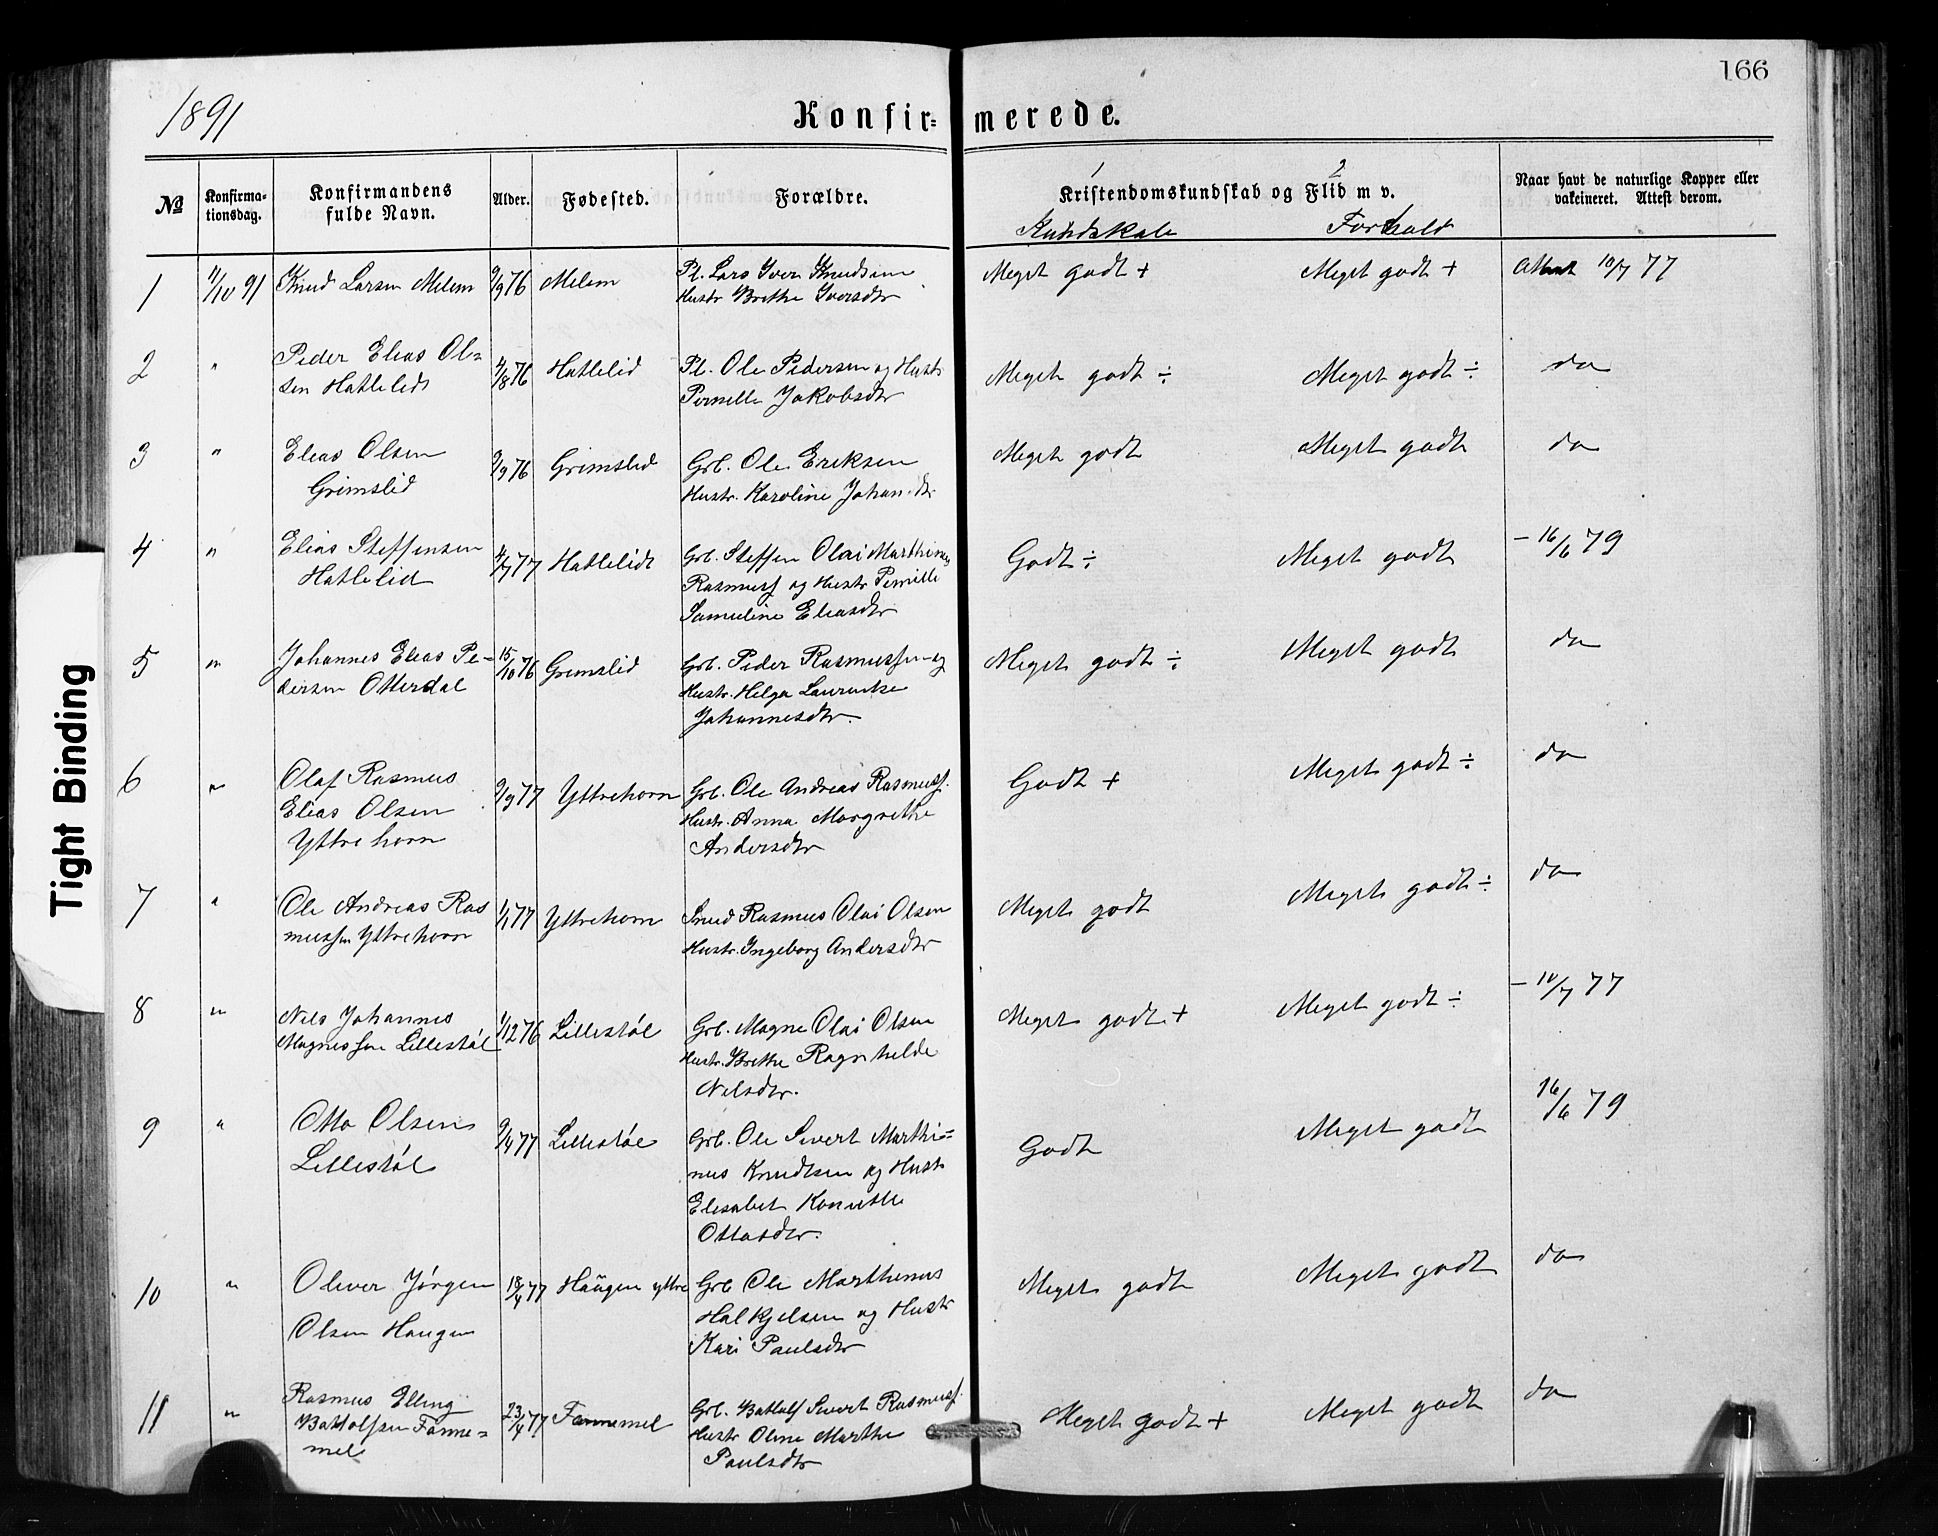 166
1891
Konfir= merede.
№
Konfirma-
tionsdag.
Konfirmandens
fulde Navn.
Alder.
Fødested.
Forældre.
1 2
Kristendomskundskab og Flid m v.
Kundskab Forhold
Naar havt de naturlige Kopper eller
vakcineret. Attest derom.
Tight Binding
1 11/10 91 Knud Larsen Melem 9/9 76 Melem
Pl. Lars Iver Knudsen
Hustr Brethe Iversdtr
Meget godt + Meget godt + Attest 10/7 77
2 "
Peder Elias Ol=
sen Hatlelid
4/8 76 Hatlelid
Pl. Ole Pedersen og Hustr
Pernille Jakobsdtr
Meget godt ÷ Meget godt ÷ do
3 "
Elias Olsen
Grimslid
9/9 76 Grimslid
Grb. Ole Eriksen
Hustr. Karoline Johan.dtr
Meget godt Meget godt do
4 "
Elias Steffensen
Hatlelid
4/7 77 Hatlelid
Grb. Steffen Olai Marthinus
Rasmuss og Hustr Pernille
Samueline Eliasdtr
Godt ÷ Meget godt – 16/6 79
5 "
Johannes Elias Pe=
dersen Otterdal
15/10 76 Grimslid
Grb. Peder Rasmussen og
Hustr. Helga Laurentse
Johannesdtr.
Meget godt ÷ Meget godt do
6 "
Olaf Rasmus
Elias Olsen
Yttrehorn
9/9 77 Yttrehorn
Grb. Ole Andreas Rasmuss.
Hustr. Anna Margrethe
Andersdtr
Godt + Meget godt ÷ do
7 "
Ole Andreas Ras
mussen Yttrehorn
1/1 77 Yttrehorn
Smed Rasmus Olai Olsen
Hustr. Ingeborg Andersdtr
Meget godt Meget godt ÷ do
8 "
Nils Johannes
Magnessen Lillestøl
1/12 76 Lillestøl
Grb. Magne Olai Olsen
Hustr. Brethe Ragnhilde
Nilsdtr.
Meget godt + Meget godt ÷ – 10/7 77
9 "
Otto Olsen
Lillestøl
9/4 77 Lillestøl
Grb. Ole Sivert Marthi=
nus Knudsen og Hustr
Elisabet Kanutte
Ottosdtr.
Godt Meget godt 16/6 79
10 "
Oliver Jørgen
Olsen Haugen
18/4 77 Haugen yttre
Grb Ole Marthinus
Halkjelsen og Hustr
Kari Paulsdtr
Meget godt Meget godt do
11 "
Rasmus Elling
Battolfsen Fanne=
mel
23/4 77 Fannemel
Grb. Battolf Sivert Rasmuss.
Hustr Oline Marthe
Paulsdtr
Meget godt + Meget godt do